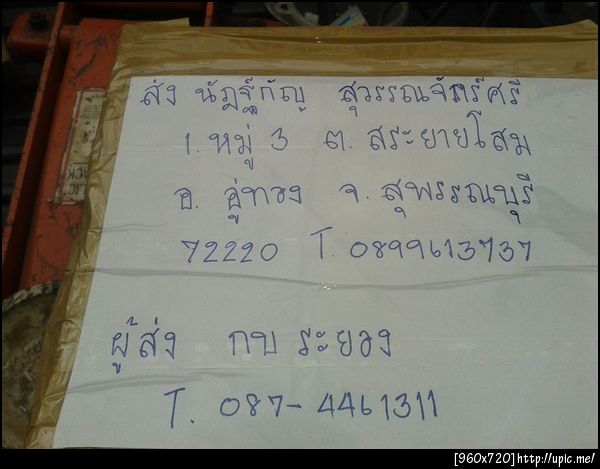 ส่ง นัฎฐ์กัญ สุวรรณจักร์ศรี
1. หมู่ 3 ต. สระยายโสม
อ. อู่ทอง จ. สุพรรณบุรี
72220 T. 0899613737
ผู้ส่ง กบ ระยอง
T. 087-4461311
[960x720]http://upic.me/